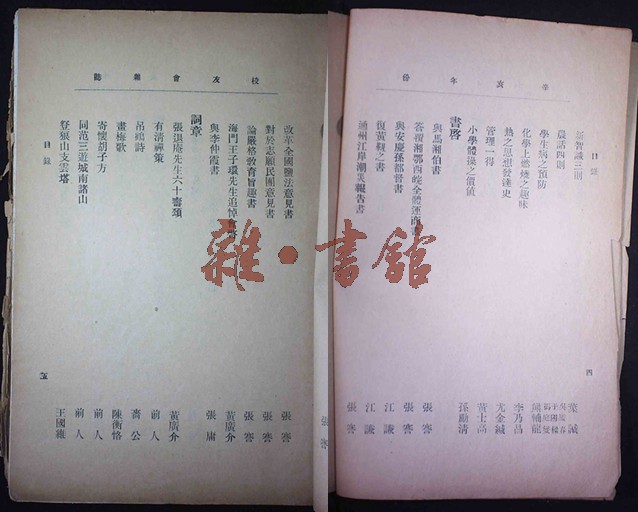 辛亥年份
目錄
新智識三則 葉誠
農話四則
學生病之預防
化學上燃燒之趣味 李乃昌
熱之思想發達史 尤金鏞
管理一得
小學體操之價值 孫勳清
書啓
與馬湘伯書 張謇
答湣湘鄂西皖全體運商書 張謇
與安慶孫都督書 江謙
復黃鞠之書 江謙
通州江岸潮災報告書 張謇
四
張謇
校友會雜誌
改革全國鹽法意見書 張謇
對於志願民團意見書 張謇
論嚴格敎育旨趣書 張謇
海門王子環先生追悼會啓 黃廣介
與李仲霞書 張庸
詞章
張退庵先生六十壽頌 黃廣介
有清禪策 前人
吊鵶詩 嗇公
畫梅歌 陳衡恪
寄懷胡子方 前人
同范三遊城南諸山 前人
登狼山支雲塔 王國維
目錄
五
雜·書館